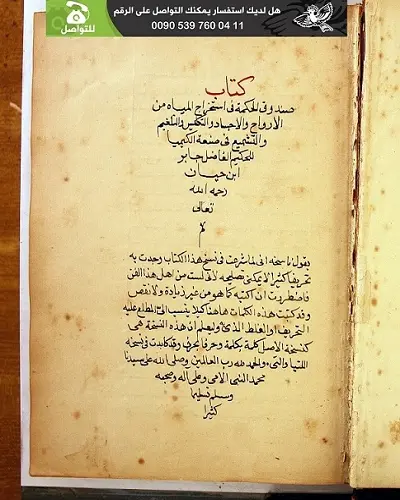 هل لديك استفسار يمكنك التواصل على الرقم
0090 539 760 04 11
للتواصل
كتاب
صندوق الحكمة في استخراج المياه من
الارواح والاجساد والتكليس والتطعيم
والتشميع في صنعة الكيميا
للحكيم الفاضل جابر
ابن حيان
رحمه الله
تعالى
يقول ناسخه اني لما شرعت في نسخ هذا الكتاب وجدت به
تحريفا كثيرا لا يمكنني تصليحه لاني لست من اهل هذا الفن
فاضطررت ان اكتبه كما هو من غير زيادة ولا نقص
وقد كتبت هذه الكلمات هاهنا كيلا ينسب الي المطلع عليه
التحريف او الغلط الذي وليعلم ان هذه النسخة هي
كنسخة الاصل كلمة بكلمة وحرفا بحرف وقد كابدت في نسخه
اللتيا والتي والحمد لله رب العالمين وصلى الله على سيدنا
محمد النبي الامي وعلى اله وصحبه
وسلم تسليما
كثيرا